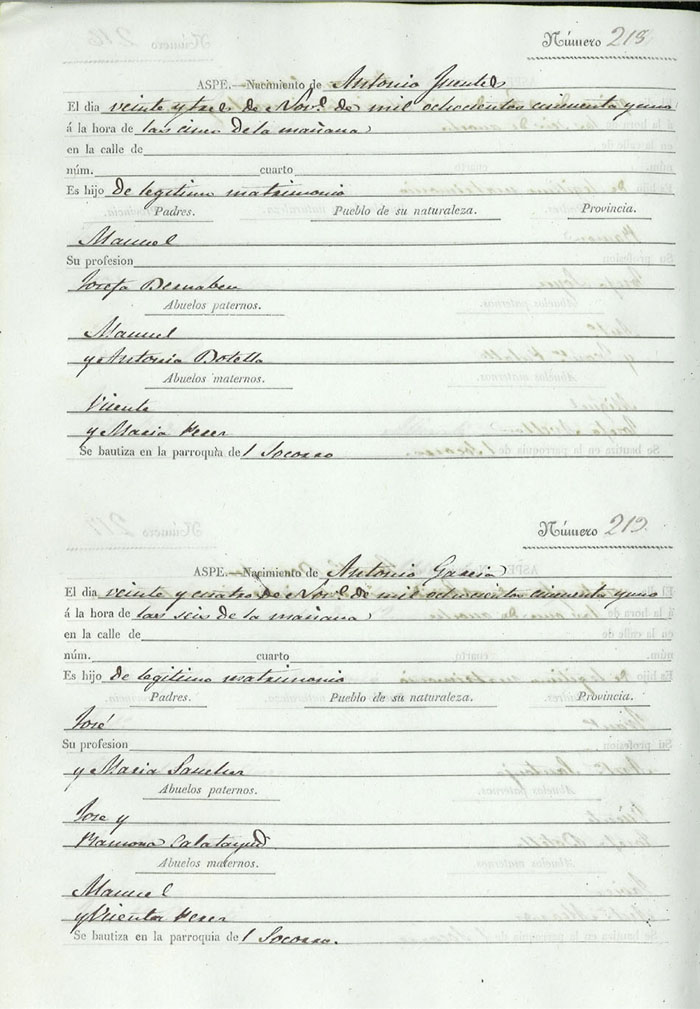 Número 218.
ASPE.—Nacimiento de Antonio Fuentes
El dia veinte y tres de Nov.e de mil ochocientos cincuenta y uno
á la hora de las cinco de la mañana
en la calle de
núm. cuarto
Es hijo de legitimo matrimonio
Padres. Pueblo de su naturaleza. Provincia.
Manuel
Su profesion
Josefa Bernabeu
Abuelos paternos.
Manuel
y Antonia Botella
Abuelos maternos.
Vicente
y Maria Perer
Se bautiza en la parroquia del Socorro
Número 219.
ASPE.—Nacimiento de Antonio Garcia
El dia veinte y cuatro de Nov.e de mil ochocientos cincuenta y uno
á la hora de las seis de la mañana
en la calle de
núm. cuarto
Es hijo de legitimo matrimonio
Padres. Pueblo de su naturaleza. Provincia.
José
Su profesion
y Maria Sanchez
Abuelos paternos.
Jose y
Ramona Calatayud
Abuelos maternos.
Manuel
y Vicenta Perer
Se bautiza en la parroquia del Socorro.